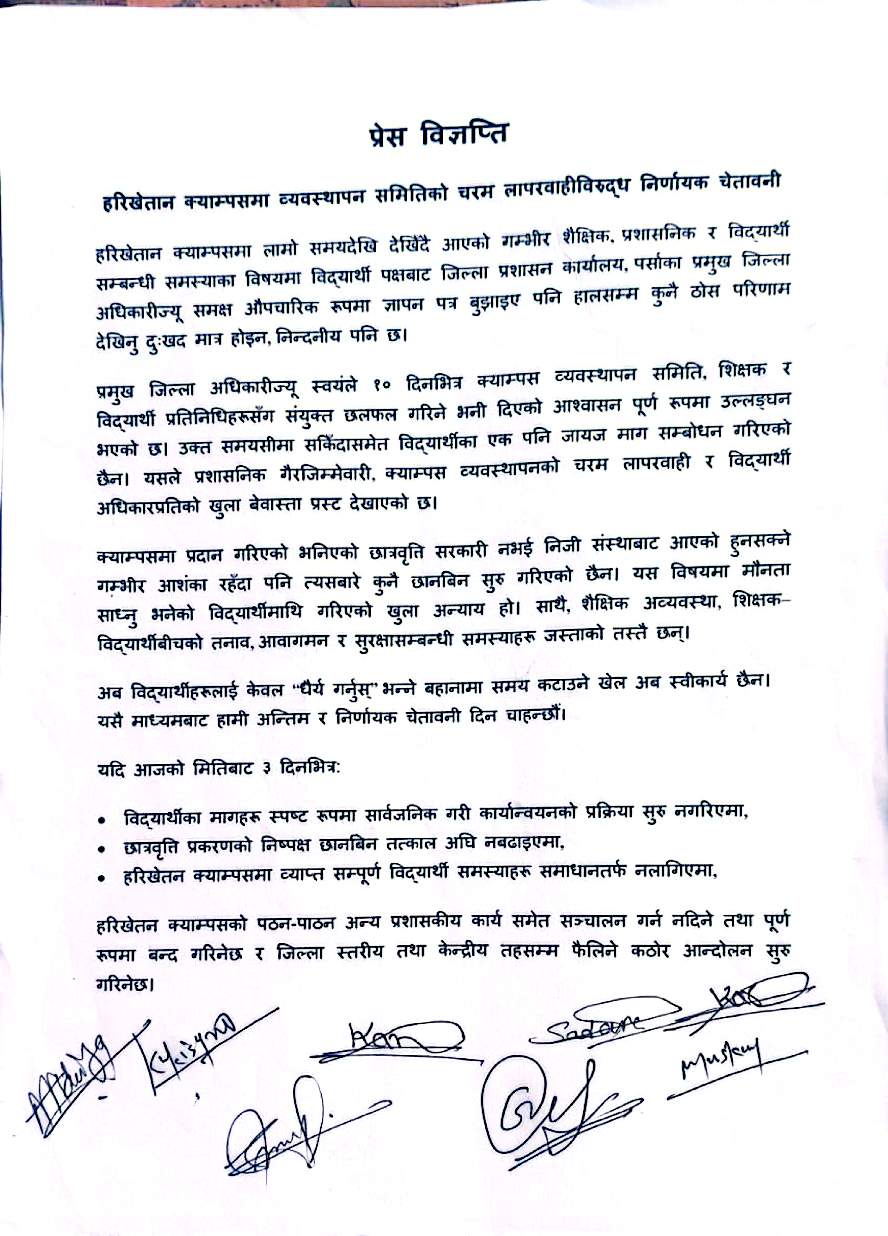 प्रेस विज्ञप्ति
हरिखेतान क्याम्पसमा व्यवस्थापन समितिको चरम लापरवाहीविरुद्ध निर्णायक चेतावनी
हरिखेतान क्याम्पसमा लामो समयदेखि देखिँदै आएको गम्भीर शैक्षिक, प्रशासनिक र विद्यार्थी
सम्बन्धी समस्याका विषयमा विद्यार्थी पक्षबाट जिल्ला प्रशासन कार्यालय, पर्साका प्रमुख जिल्ला
अधिकारीज्यू समक्ष औपचारिक रूपमा ज्ञापन पत्र बुझाइए पनि हालसम्म कुनै ठोस परिणाम
देखिनु दुःखद मात्र होइन, निन्दनीय पनि छ।
प्रमुख जिल्ला अधिकारीज्यू स्वयंले १० दिनभित्र क्याम्पस व्यवस्थापन समिति, शिक्षक र
विद्यार्थी प्रतिनिधिहरूसँग संयुक्त छलफल गरिने भनी दिएको आश्वासन पूर्ण रूपमा उल्लङ्घन
भएको छ। उक्त समयसीमा सकिँदासमेत विद्यार्थीका एक पनि जायज माग सम्बोधन गरिएको
छैन। यसले प्रशासनिक गैरजिम्मेवारी, क्याम्पस व्यवस्थापनको चरम लापरवाही र विद्यार्थी
अधिकारप्रतिको खुला बेवास्ता प्रस्ट देखाएको छ।
क्याम्पसमा प्रदान गरिएको भनिएको छात्रवृति सरकारी नभई निजी संस्थाबाट आएको हुनसक्ने
गम्भीर आशंका रहँदा पनि त्यसबारे कुनै छानबिन सुरु गरिएको छैन। यस विषयमा मौनता
साध्नु भनेको विद्यार्थीमाथि गरिएको खुला अन्याय हो। साथै, शैक्षिक अव्यवस्था, शिक्षक–
विद्यार्थीबीचको तनाव, आवागमन र सुरक्षासम्बन्धी समस्याहरू जस्ताको तस्तै छन्।
अब विद्यार्थीहरूलाई केवल “धैर्य गर्नुस्” भन्ने बहानामा समय कटाउने खेल अब स्वीकार्य छैन।
यसै माध्यमबाट हामी अन्तिम र निर्णायक चेतावनी दिन चाहन्छौं।
यदि आजको मितिबाट ३ दिनभित्र:
• विद्यार्थीका मागहरू स्पष्ट रूपमा सार्वजनिक गरी कार्यान्वयनको प्रक्रिया सुरु नगरिएमा,
• छात्रवृत्ति प्रकरणको निष्पक्ष छानबिन तत्काल अघि नबढाइएमा,
• हरिखेतन क्याम्पसमा व्याप्त सम्पूर्ण विद्यार्थी समस्याहरू समाधानतर्फ नलागिएमा,
हरिखेतन क्याम्पसको पठन-पाठन अन्य प्रशासकीय कार्य समेत सञ्चालन गर्न नदिने तथा पूर्ण
रूपमा बन्द गरिनेछ र जिल्ला स्तरीय तथा केन्द्रीय तहसम्म फैलिने कठोर आन्दोलन सुरु
गरिनेछ।